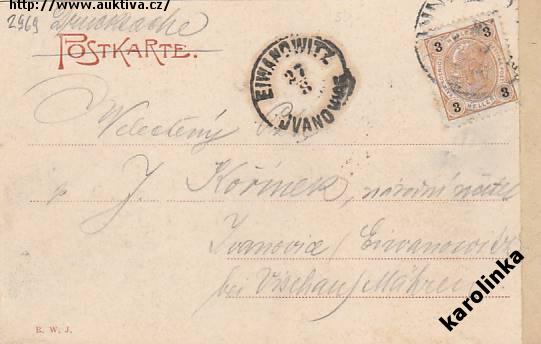 http://www.auktiva.cz/
2969 Drucksache
POSTKARTE.
EIWANOWITZ
27
8
IVANOVICE
3 3
3 3
HELLER
Velectěný Pan
p J. Kořínek, národní učitel
Ivanovice / Eiwanowitz
bei Wischau / Mähren
R. W. J.
karolinka